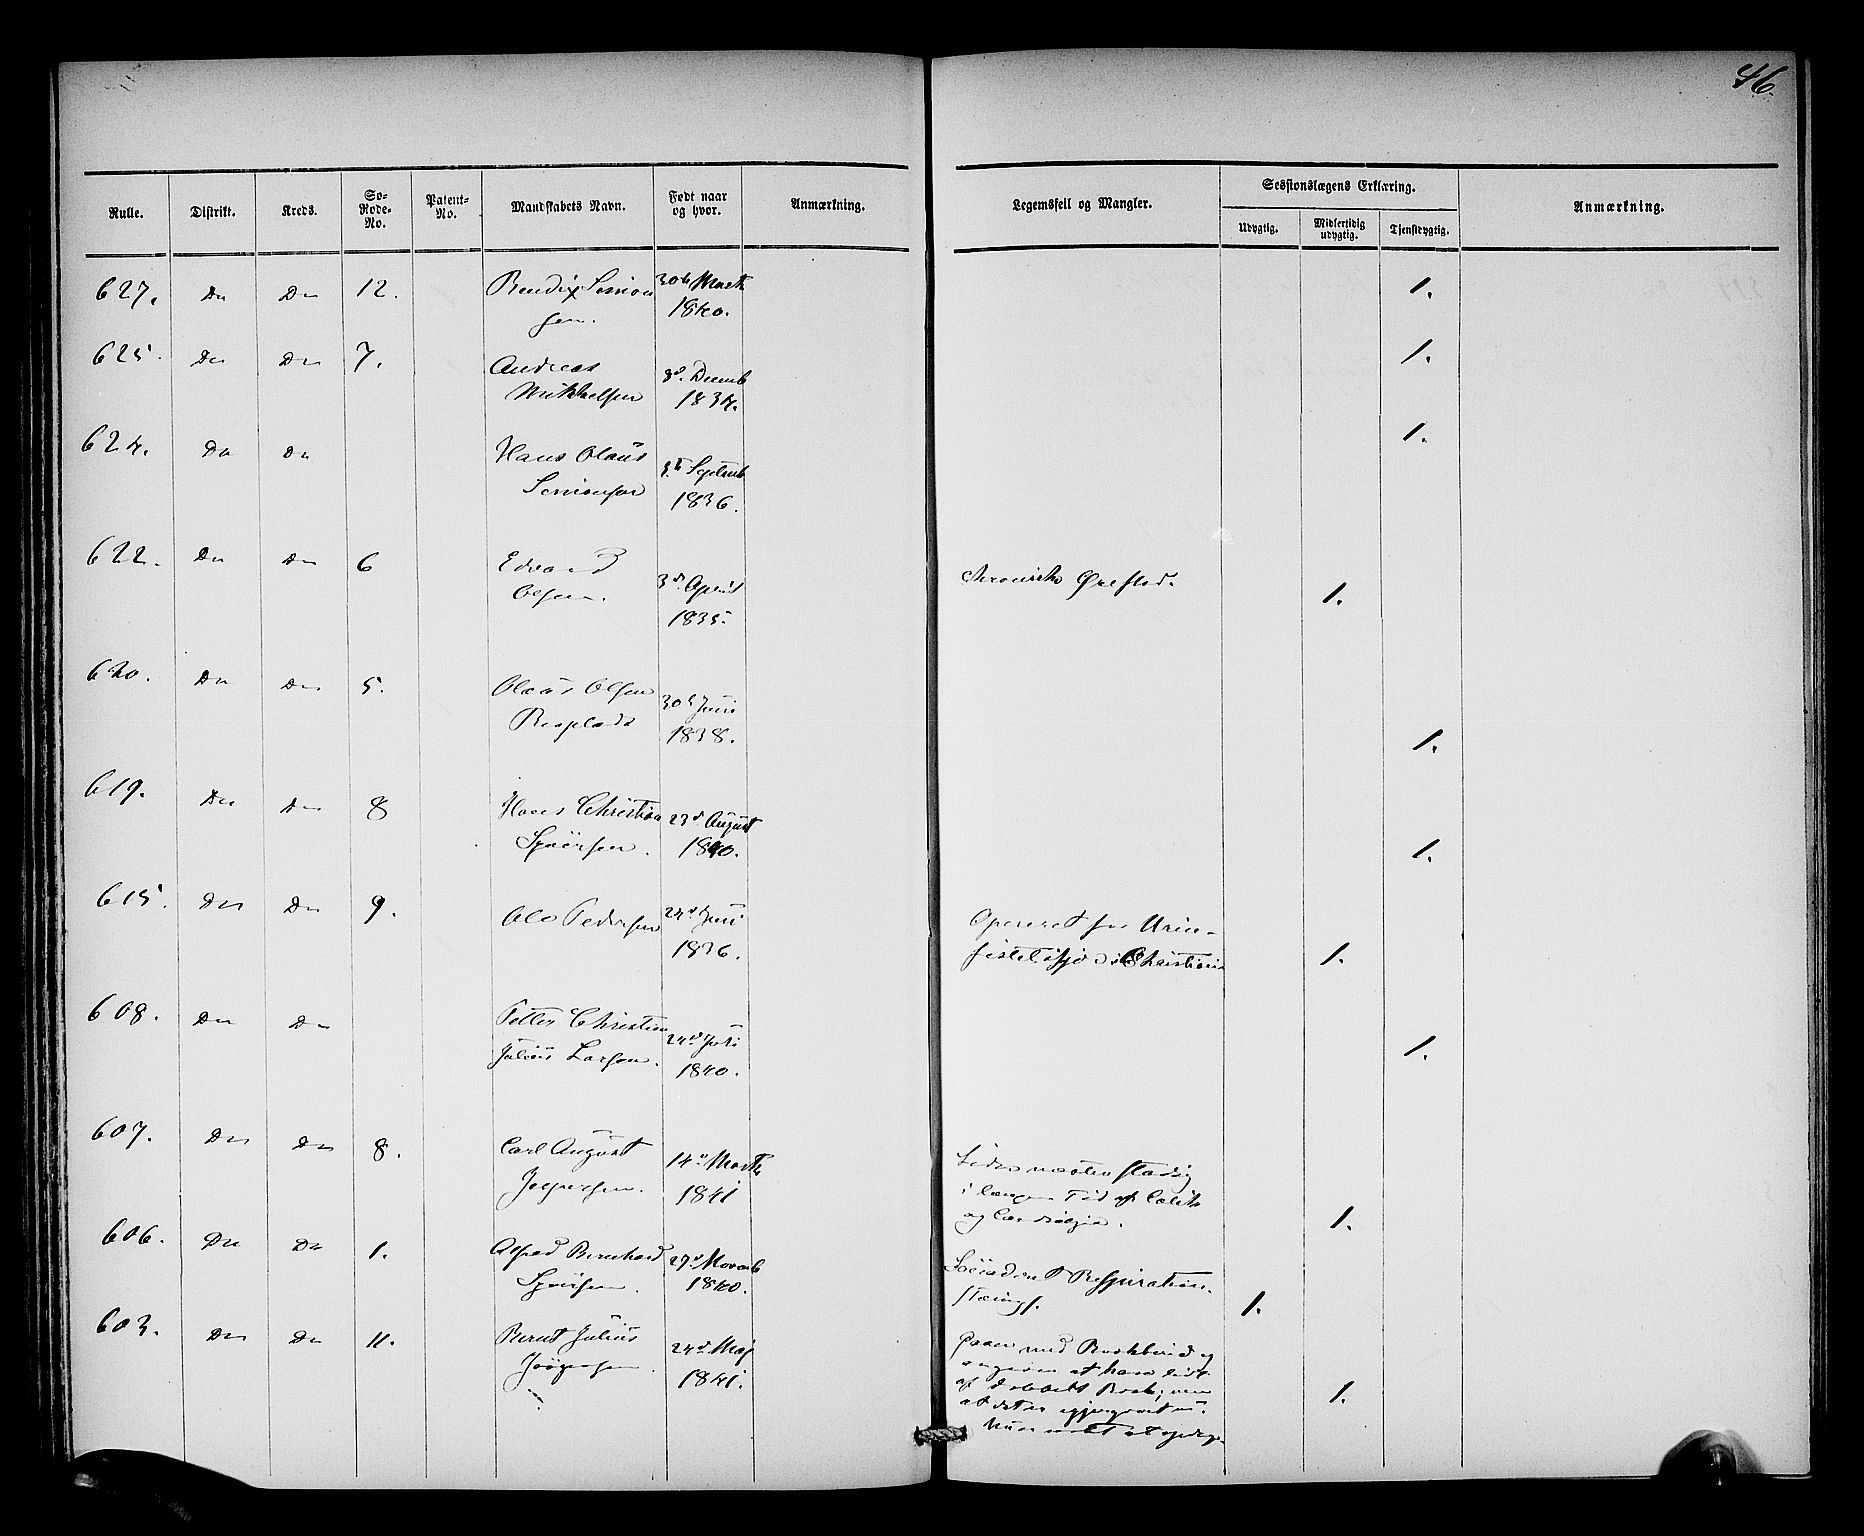 46.
Rulle. Distrikt. Kreds. Sø-Rode-No. Patent-No. Mandskabets Navn. Født naar og hvor. Anmærkning. Legemsfeil og Mangler. Sessionslægens Erklæring. Anmærkning.
Udygtig. Midlertidig udygtig. Tjenstdygtig.
627. Do Do 12. Bendix Simon 30te Marts 1.
sen. 1840.
625. Do Do 7. Andreas 8d. Decemb 1.
Mikkelsen 1834.
624. Do Do Hans Olaus Septemb 1.
Simonsen 1836.
622. Do Do 6 Edvard 3d. April chronisk Øreflod. 1.
Olsen. 1835.
620. Do Do 5. Olaus Olsen 30d Juni
1838. 1.
619. Do Do 8 Hans Christian 23d August
1840. 1.
615. Do Do 9. Ole Pedersen 24d Juni Opereret for Urin-
1836. fistel Christiania 1.
608. Do Do Petter Christian 24d
Julius Larsen. 1840. 1.
607. Do Do 8. Carl August 14d Marts Lider næsten stadig
Jespersen. 1841 i længere Tid af Colik
og Cardialgia. 1.
606. Do Do 1. Alfred Bernhard 27d Novemb Respirations-
1840. 1.
603. Do Do 11. Bernt Julius 24d Maj Gaaer med Brokbind og
Jørgensen 1841. angiver at have lidt
af dobbelt Brok; men
at det er 1.